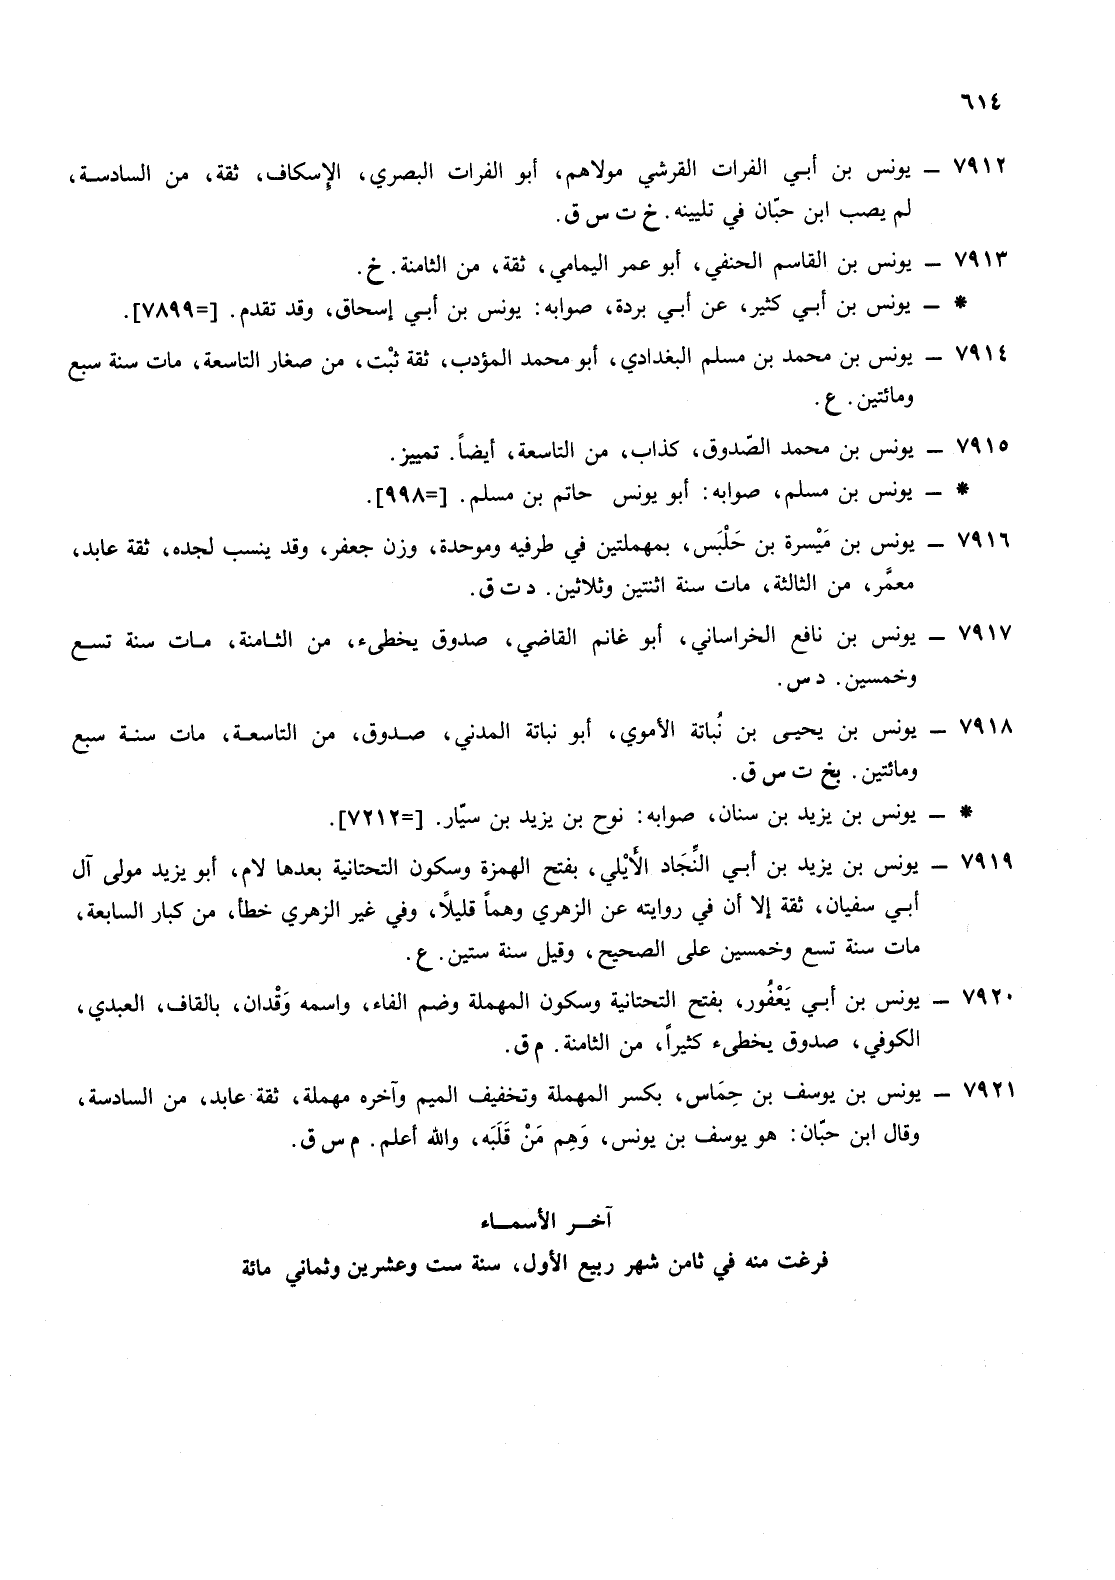 ٦١٤
٧٩١٢ ــ يونس بن أبي الفرات القرشي مولاهم، أبو الفرات البصري، الإسكاف، ثقة، من السادسة،
لم يصب ابن حبّان في تليينه. خ ت س ق.
٧٩١٣ ــ يونس بن القاسم الحنفي، أبو عمر اليمامي، ثقة، من الثامنة. خ.
* ــ يونس بن أبي كثير، عن أبي بردة، صوابه: يونس بن أبي إسحاق، وقد تقدم. [=٧٨٩٩].
٧٩١٤ ــ يونس بن محمد بن مسلم البغدادي، أبو محمد المؤدب، ثقة ثبْت، من صغار التاسعة، مات سنة سبع
ومائتين. ع.
٧٩١٥ ــ يونس بن محمد الصّدوق، كذاب، من التاسعة، أيضاً. تمييز.
* ــ يونس بن مسلم، صوابه: أبو يونس حاتم بن مسلم. [=٩٩٨].
٧٩١٦ ــ يونس بن مَيْسرة بن حَلْبَس، بمهملتين في طرفيه وموحدة، وزن جعفر، وقد ينسب لجده، ثقة عابد،
معمَّر، من الثالثة، مات سنة اثنتين وثلاثين. د ت ق.
٧٩١٧ ــ يونس بن نافع الخراساني، أبو غانم القاضي، صدوق يخطىء، من الثامنة، مات سنة تسع
وخمسين. د س.
٧٩١٨ ــ يونس بن يحيى بن نُباتة الأموي، أبو نباتة المدني، صدوق، من التاسعة، مات سنة سبع
ومائتين. بخ ت س ق.
* ــ يونس بن يزيد بن سنان، صوابه: نوح بن يزيد بن سيّار. [=٧٢١٢].
٧٩١٩ ــ يونس بن يزيد بن أبي النِّجَاد الأَيْلي، بفتح الهمزة وسكون التحتانية بعدها لام، أبو يزيد مولى آل
أبي سفيان، ثقة إلا أن في روايته عن الزهري وهماً قليلاً، وفي غير الزهري خطأ، من كبار السابعة،
مات سنة تسع وخمسين على الصحيح، وقيل سنة ستين. ع.
٧٩٢٠ ــ يونس بن أبي يَعْفُور، بفتح التحتانية وسكون المهملة وضم الفاء، واسمه وَقْدان، بالقاف، العبدي،
الكوفي، صدوق يخطىء كثيراً، من الثامنة. م ق.
٧٩٢١ ــ يونس بن يوسف بن حِمَاس، بكسر المهملة وتخفيف الميم وآخره مهملة، ثقة عابد، من السادسة،
وقال ابن حبّان: هو يوسف بن يونس، وَهِم مَنْ قَلَبَه، والله أعلم. م س ق.
آخر الأسماء
فرغت منه في ثامن شهر ربيع الأول، سنة ست وعشرين وثماني مائة